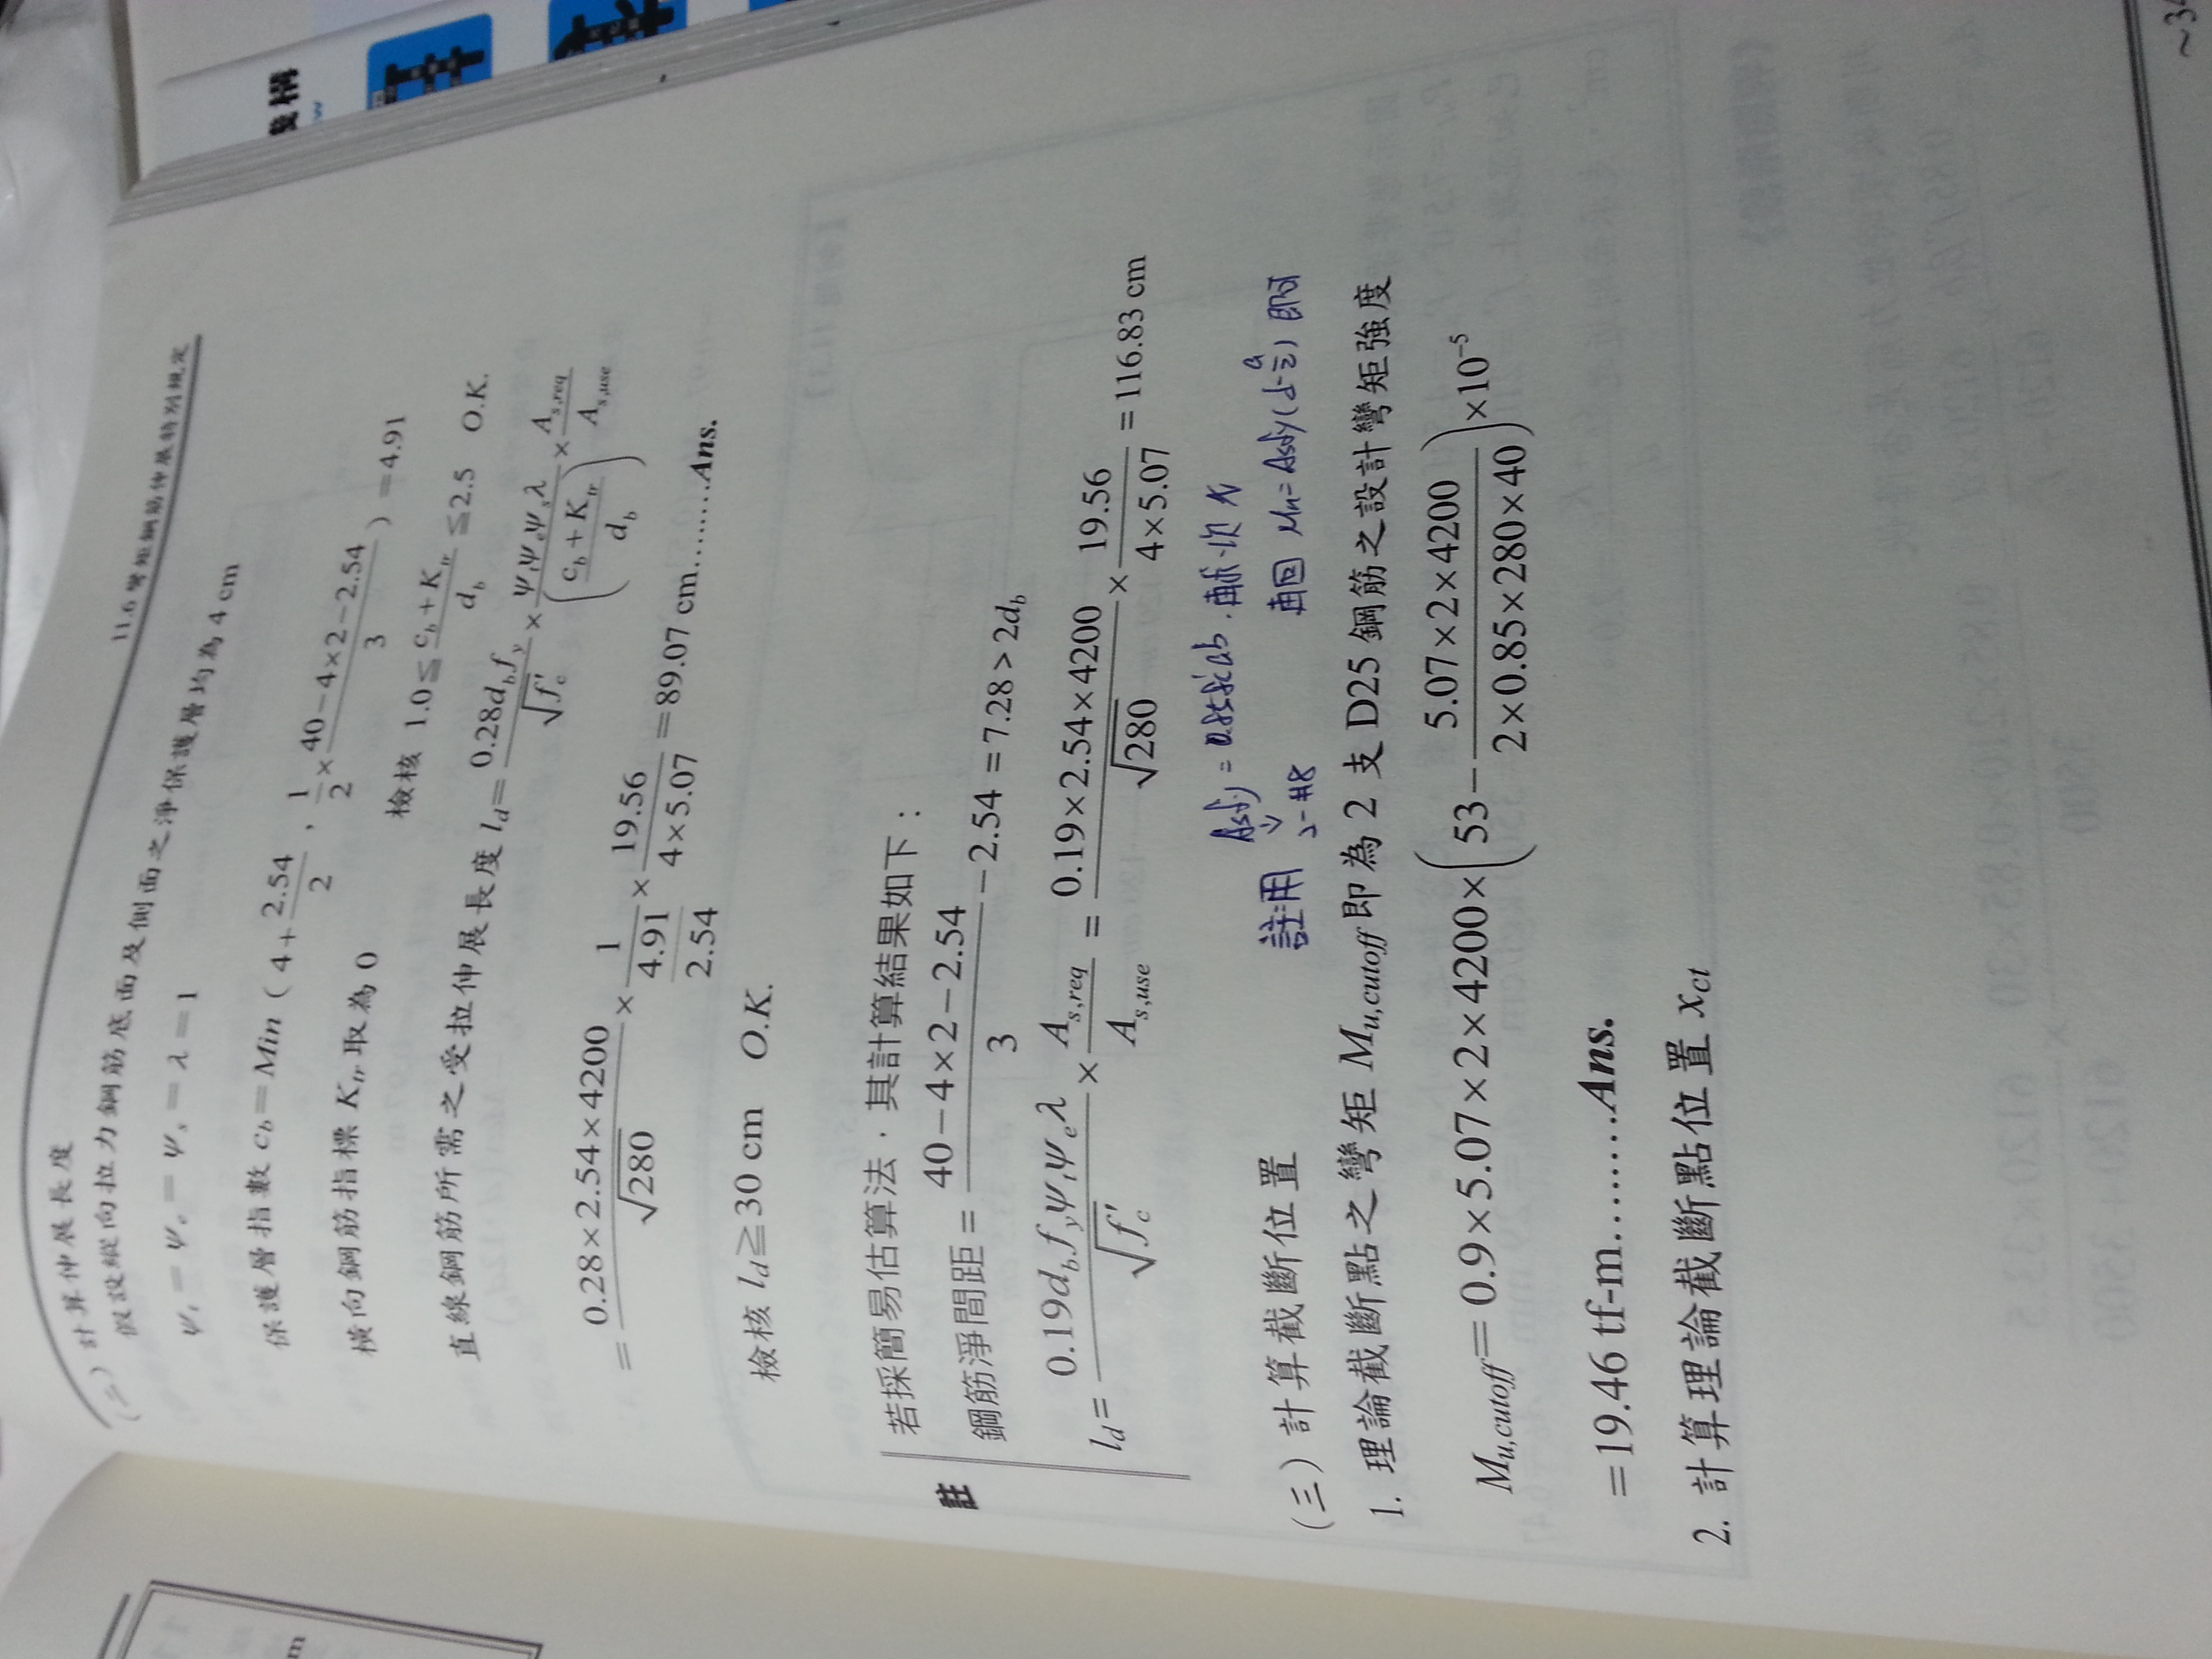 11.6 彎矩鋼筋伸展特別規定
(二) 計算伸展長度
假設縱向拉力鋼筋底面及側面之淨保護層均為 4 cm
ψt = ψe = ψs = λ = 1
保護層指數 cb = Min ( 4 + 2.54/2 , 1/2 × (40 − 4×2 − 2.54)/3 ) = 4.91
橫向鋼筋指標 Ktr 取為 0
檢核 1.0 ≦ (cb + Ktr)/db ≦ 2.5 O.K.
直線鋼筋所需之受拉伸展長度 ld = 0.28dbfy/√f'c × ψtψeψsλ/((cb + Ktr)/db) × As,req/As,use
= 0.28×2.54×4200/√280 × 1/(4.91/2.54) × 19.56/(4×5.07) = 89.07 cm………Ans.
檢核 ld ≧ 30 cm O.K.
註
若採簡易估算法,其計算結果如下:
鋼筋淨間距 = (40 − 4×2 − 2.54)/3 − 2.54 = 7.28 > 2db
ld = 0.19dbfyψtψeλ/√f'c × As,req/As,use = 0.19×2.54×4200/√280 × 19.56/(4×5.07) = 116.83 cm
註:用 Asfy = 0.85fc'ab,再求一次 x
2-#8 再回 Mn = Asfy(d-a/2) 即可
(三) 計算截斷位置
1. 理論截斷點之彎矩 Mu,cutoff 即為 2 支 D25 鋼筋之設計彎矩強度
Mu,cutoff = 0.9×5.07×2×4200×(53 − 5.07×2×4200/(2×0.85×280×40))×10⁻⁵
= 19.46 tf-m………Ans.
2. 計算理論截斷點位置 xct